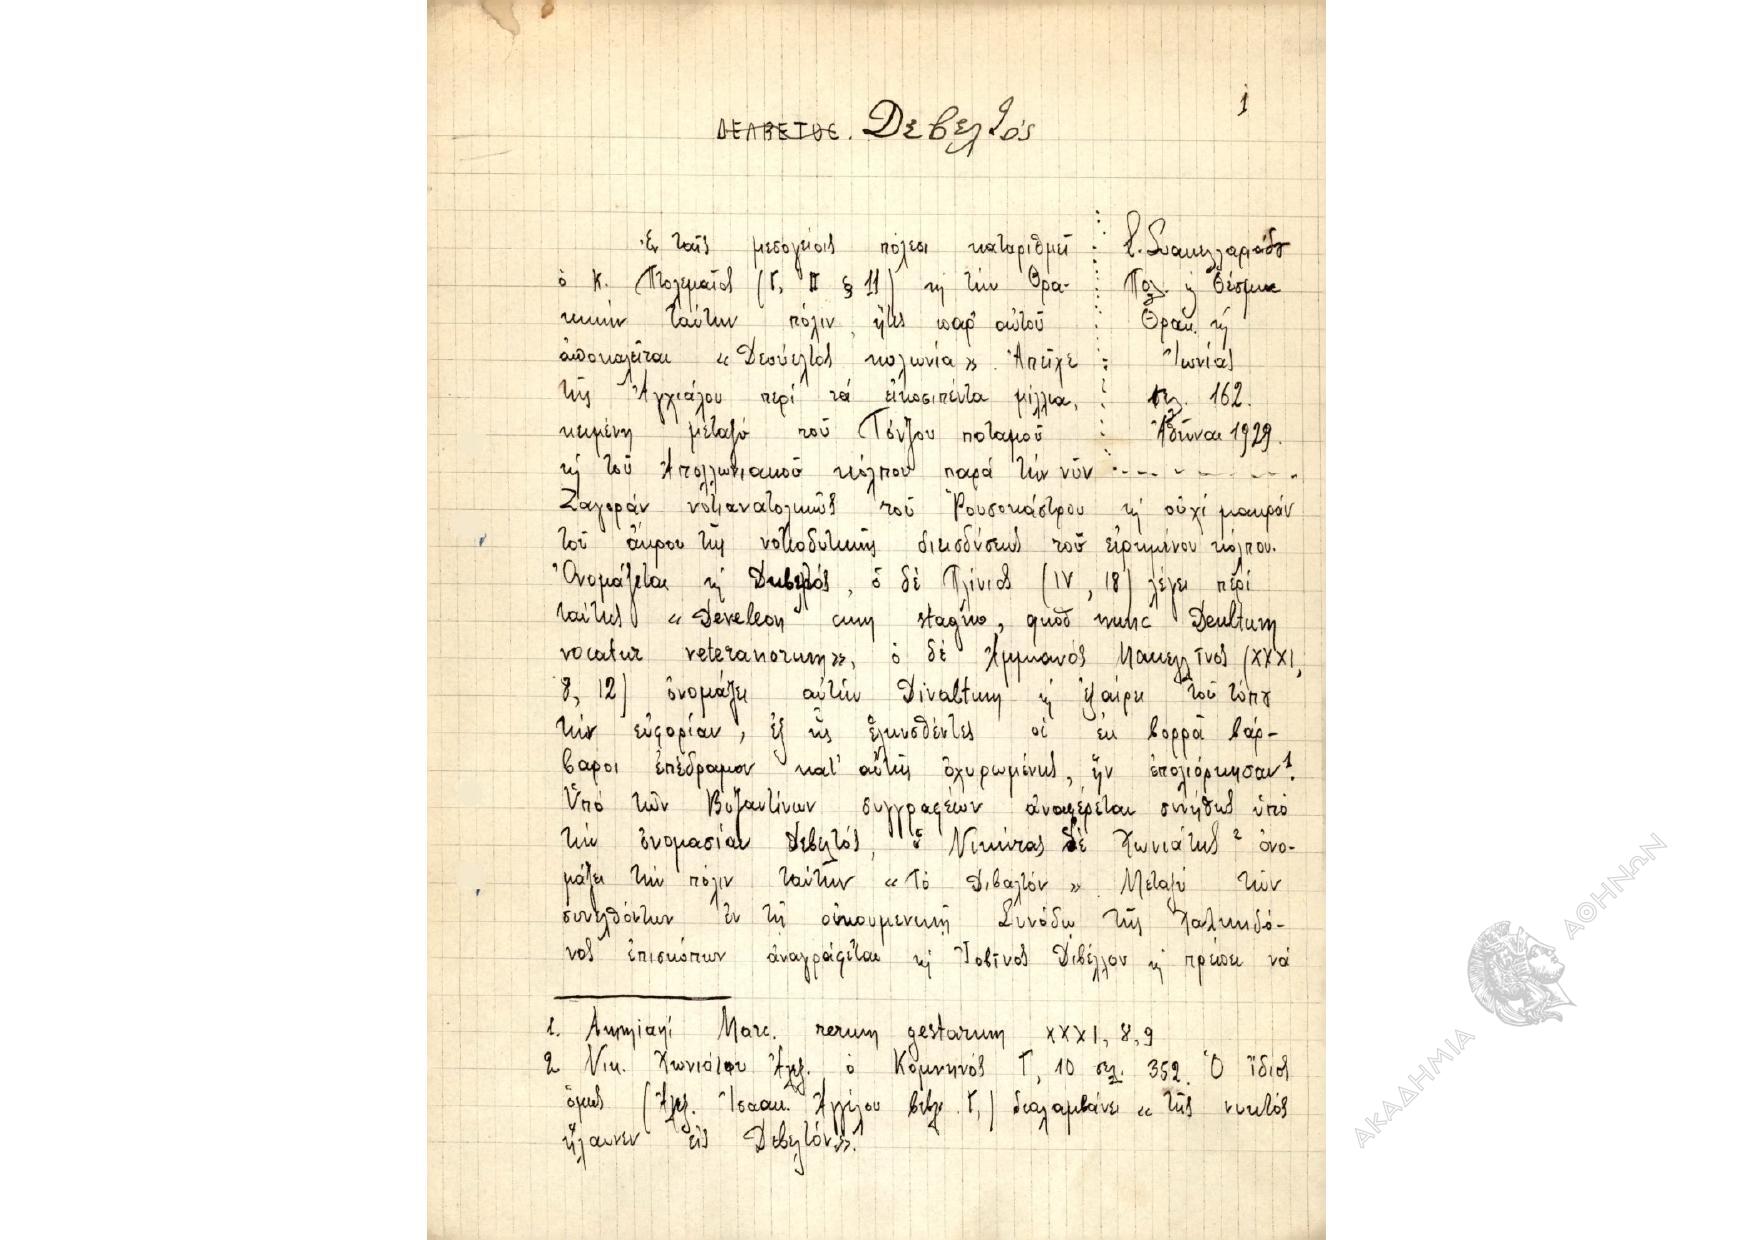 1
ΔΕΛΒΕΤΟΣ. Δεβελτός
Ἐν ταῖς μεσογείοις πόλεσι καταριθμεῖ
ὁ Κ. Πτολεμαῖος (Γ, ΙΙ § 11) κ̀ τὴν Θρα-
κικὴν ταύτην πόλιν, ἥτις παρ' αὐτοῦ
ἀποκαλεῖται «Δεούελτος κολωνία». Ἀπεῖχε
τῆς Ἀγχιάλου περὶ τά εἰκοσιπέντα μίλλια,
κειμένη μεταξύ τοῦ Τόνζου ποταμοῦ
κ̀ τοῦ Ἀπολλωνιακοῦ κόλπου παρά τήν νῦν
Σ. Σακελλαριάδου
Πόλ. κ̀ Θέσμια
Θρᾳκ. κ̀
Ἰωνίας
σελ. 162.
Ἀθῆναι 1929.
Ζαγορὰν νοτιανατολικῶς τοῦ Ρουσοκάστρου κ̀ οὐχί μακράν
τοῦ ἄκρου τῆς νοτιοδυτικῆς διεισδύσεως τοῦ εἰρημένου κόλπου.
Ὀνομάζεται κ̀ Δεβελτός, ὁ δὲ Πλίνιος (IV, 18) λέγει περί
ταύτης «Develton cum stagno, quod nunc Deultum
vocatur veteranorum», ὁ δὲ Ἀμμιανός Μακελλῖνος (XXXI,
8, 12) ὀνομάζει αὐτήν Divaltum κ̀ ἐξαίρει τοῦ τόπου
τήν εὐφορίαν, ἐξ ἧς ἑλκυσθέντες οἱ ἐκ βορρᾶ βάρ-
βαροι ἐπέδραμον κατ' αὐτῆς ὀχυρωμένης, ἥν ἐπολιόρκησαν¹.
Ὑπό τῶν Βυζαντίνων συγγραφέων ἀναφέρεται συνήθως ὑπό
τήν ὀνομασίαν Δεβελτός, ὁ Νικήτας δὲ Χωνιάτης² ὀνο-
μάζει τήν πόλιν ταύτην «Τό Διβαλτόν». Μεταξύ τῶν
συνελθόντων ἐν τῇ οἰκουμενικῇ Συνόδῳ τῆς Χαλκηδό-
νος ἐπισκόπων ἀναγράφεται κ̀ Ἰοβῖνος Διβέλλου κ̀ πρέπει νά
1. Ammiani Marc. rerum gestarum XXXI, 8, 9
2 Νικ. Χωνιάτου Ἀλεξ. ὁ Κομνηνός Γ, 10 σελ. 352. Ὁ ἴδιος
ὅμως (Ἀλεξ. Ἰσαακ. Ἀγγέλου βιβλ. Γ,) διαλαμβάνει «τῆς νυκτός
ἤλαυνεν εἰς Δεβελτόν».
ΑΚΑΔΗΜΙΑ ΑΘΗΝΩΝ